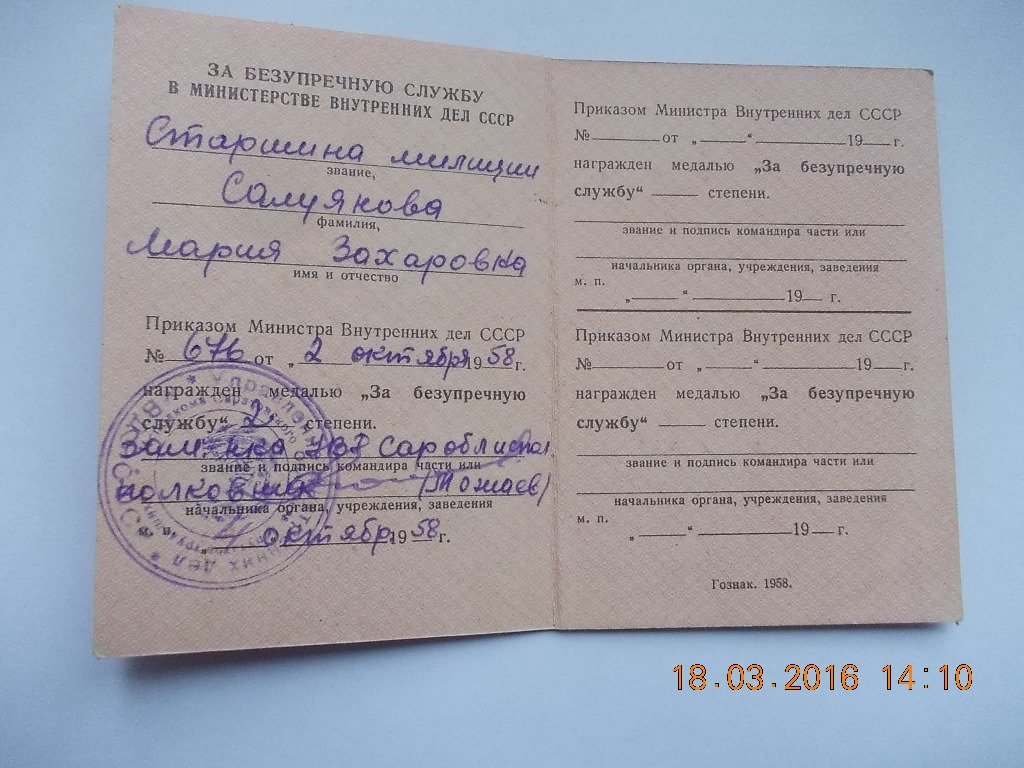 ЗА БЕЗУПРЕЧНУЮ СЛУЖБУ
В МИНИСТЕРСТВЕ ВНУТРЕННИХ ДЕЛ СССР
Старшина милиции
звание,
Салуянова
фамилия,
Мария Захаровна
имя и отчество
Приказом Министра Внутренних дел СССР
№ 676 от „ 2 октября 1958 г.
награжден медалью „За безупречную
службу“ 2 степени.
УВД Сароблиспол.
звание и подпись командира части или
полковник (Томаев)
начальника органа, учреждения, заведения
4 октябр 1958 г.
Приказом Министра Внутренних дел СССР
№ от „ “ 19 г.
награжден медалью „За безупречную
службу“ степени.
звание и подпись командира части или
начальника органа, учреждения, заведения
м. п.
„ “ 19 г.
Приказом Министра Внутренних дел СССР
№ от „ “ 19 г.
награжден медалью „За безупречную
службу“ степени.
звание и подпись командира части или
начальника органа, учреждения, заведения
м. п.
„ “ 19 г.
Гознак. 1958.
18.03.2016 14:10